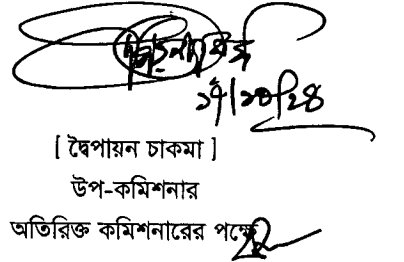 ১৭/১০/২৪
[ দ্বৈপায়ন চাকমা ]
উপ-কমিশনার
অতিরিক্ত কমিশনারের পক্ষে